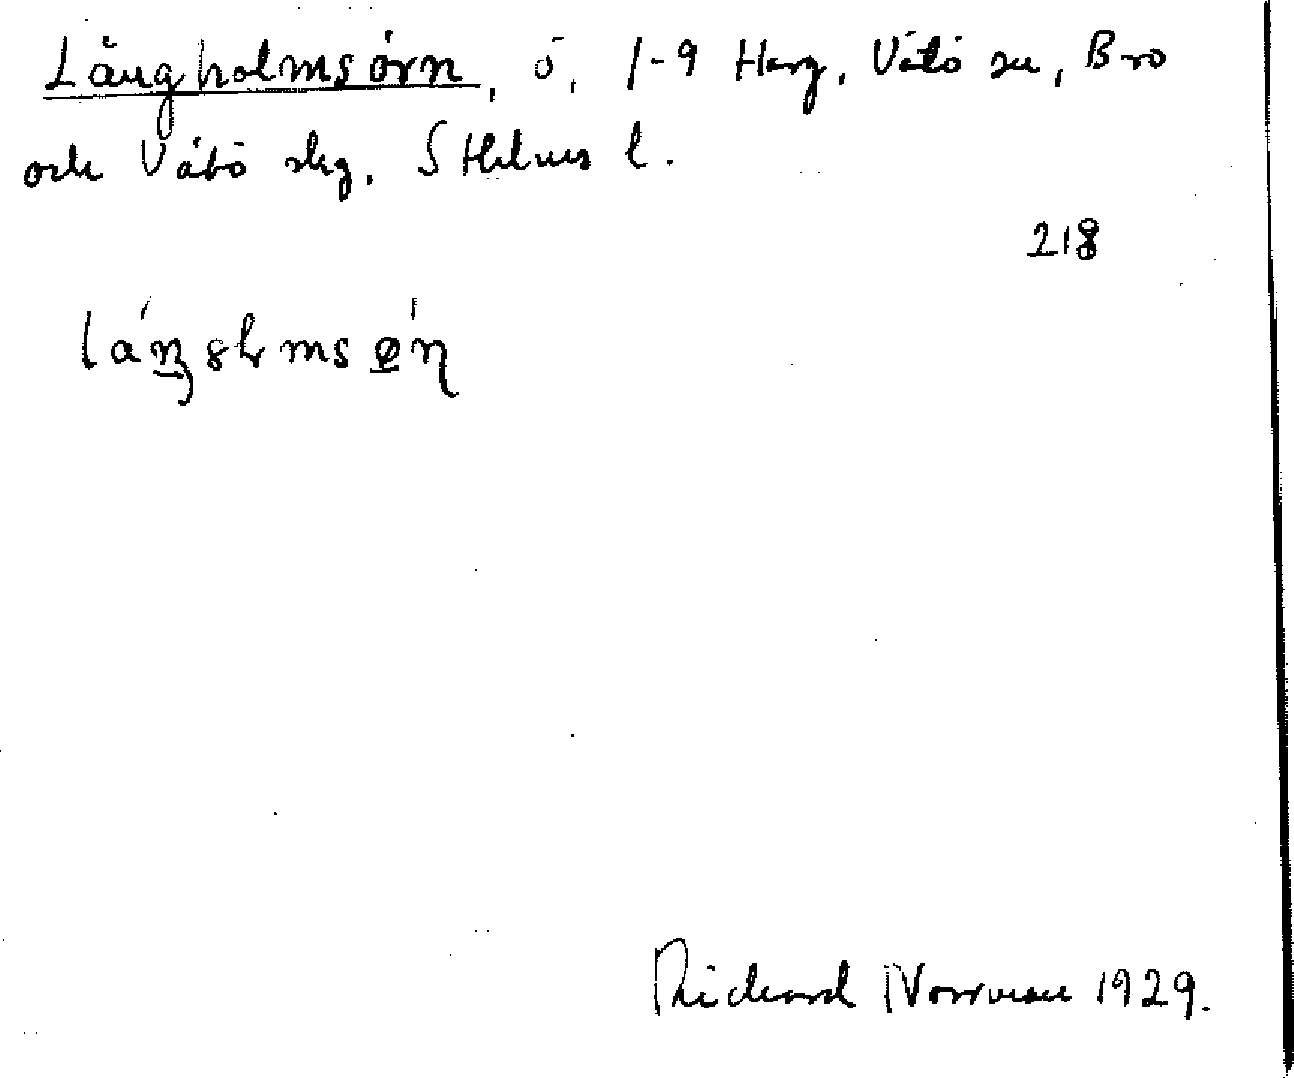 Långholmsörn, ö, 1-9 Harg, Vätö sn, Bro
och Vätö skg. Sthlms l.
218
Rickard Norrman 1929.